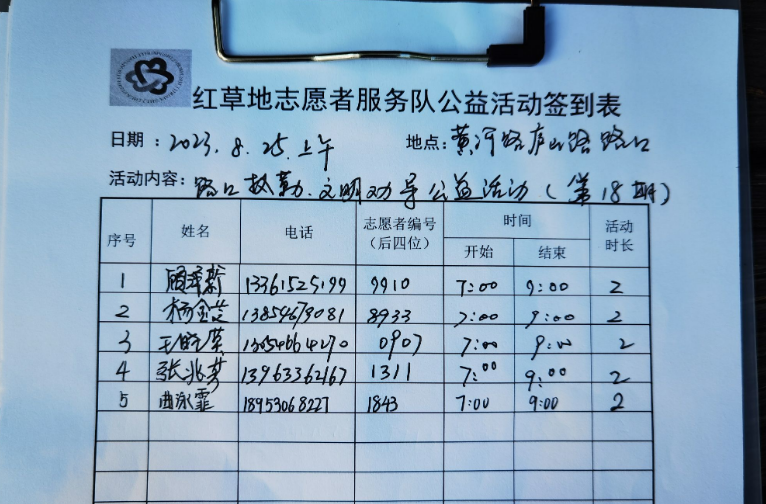 红草地志愿者服务队公益活动签到表
日期：2023.8.25.上午 地点：黄河路庐山路路口
活动内容：路口执勤.文明劝导公益活动（第18期）
序号 姓名 电话 志愿者编号（后四位） 时间 活动时长
开始 结束
1 13361525199 9910 7:00 9:00 2
2 杨金芝 13854673081 8933 7:00 9:00 2
3 0907 7:00 9:00 2
4 张兆芬 13963362167 1311 7:00 9:00 2
5 曲泳霏 18953068227 1843 7:00 9:00 2